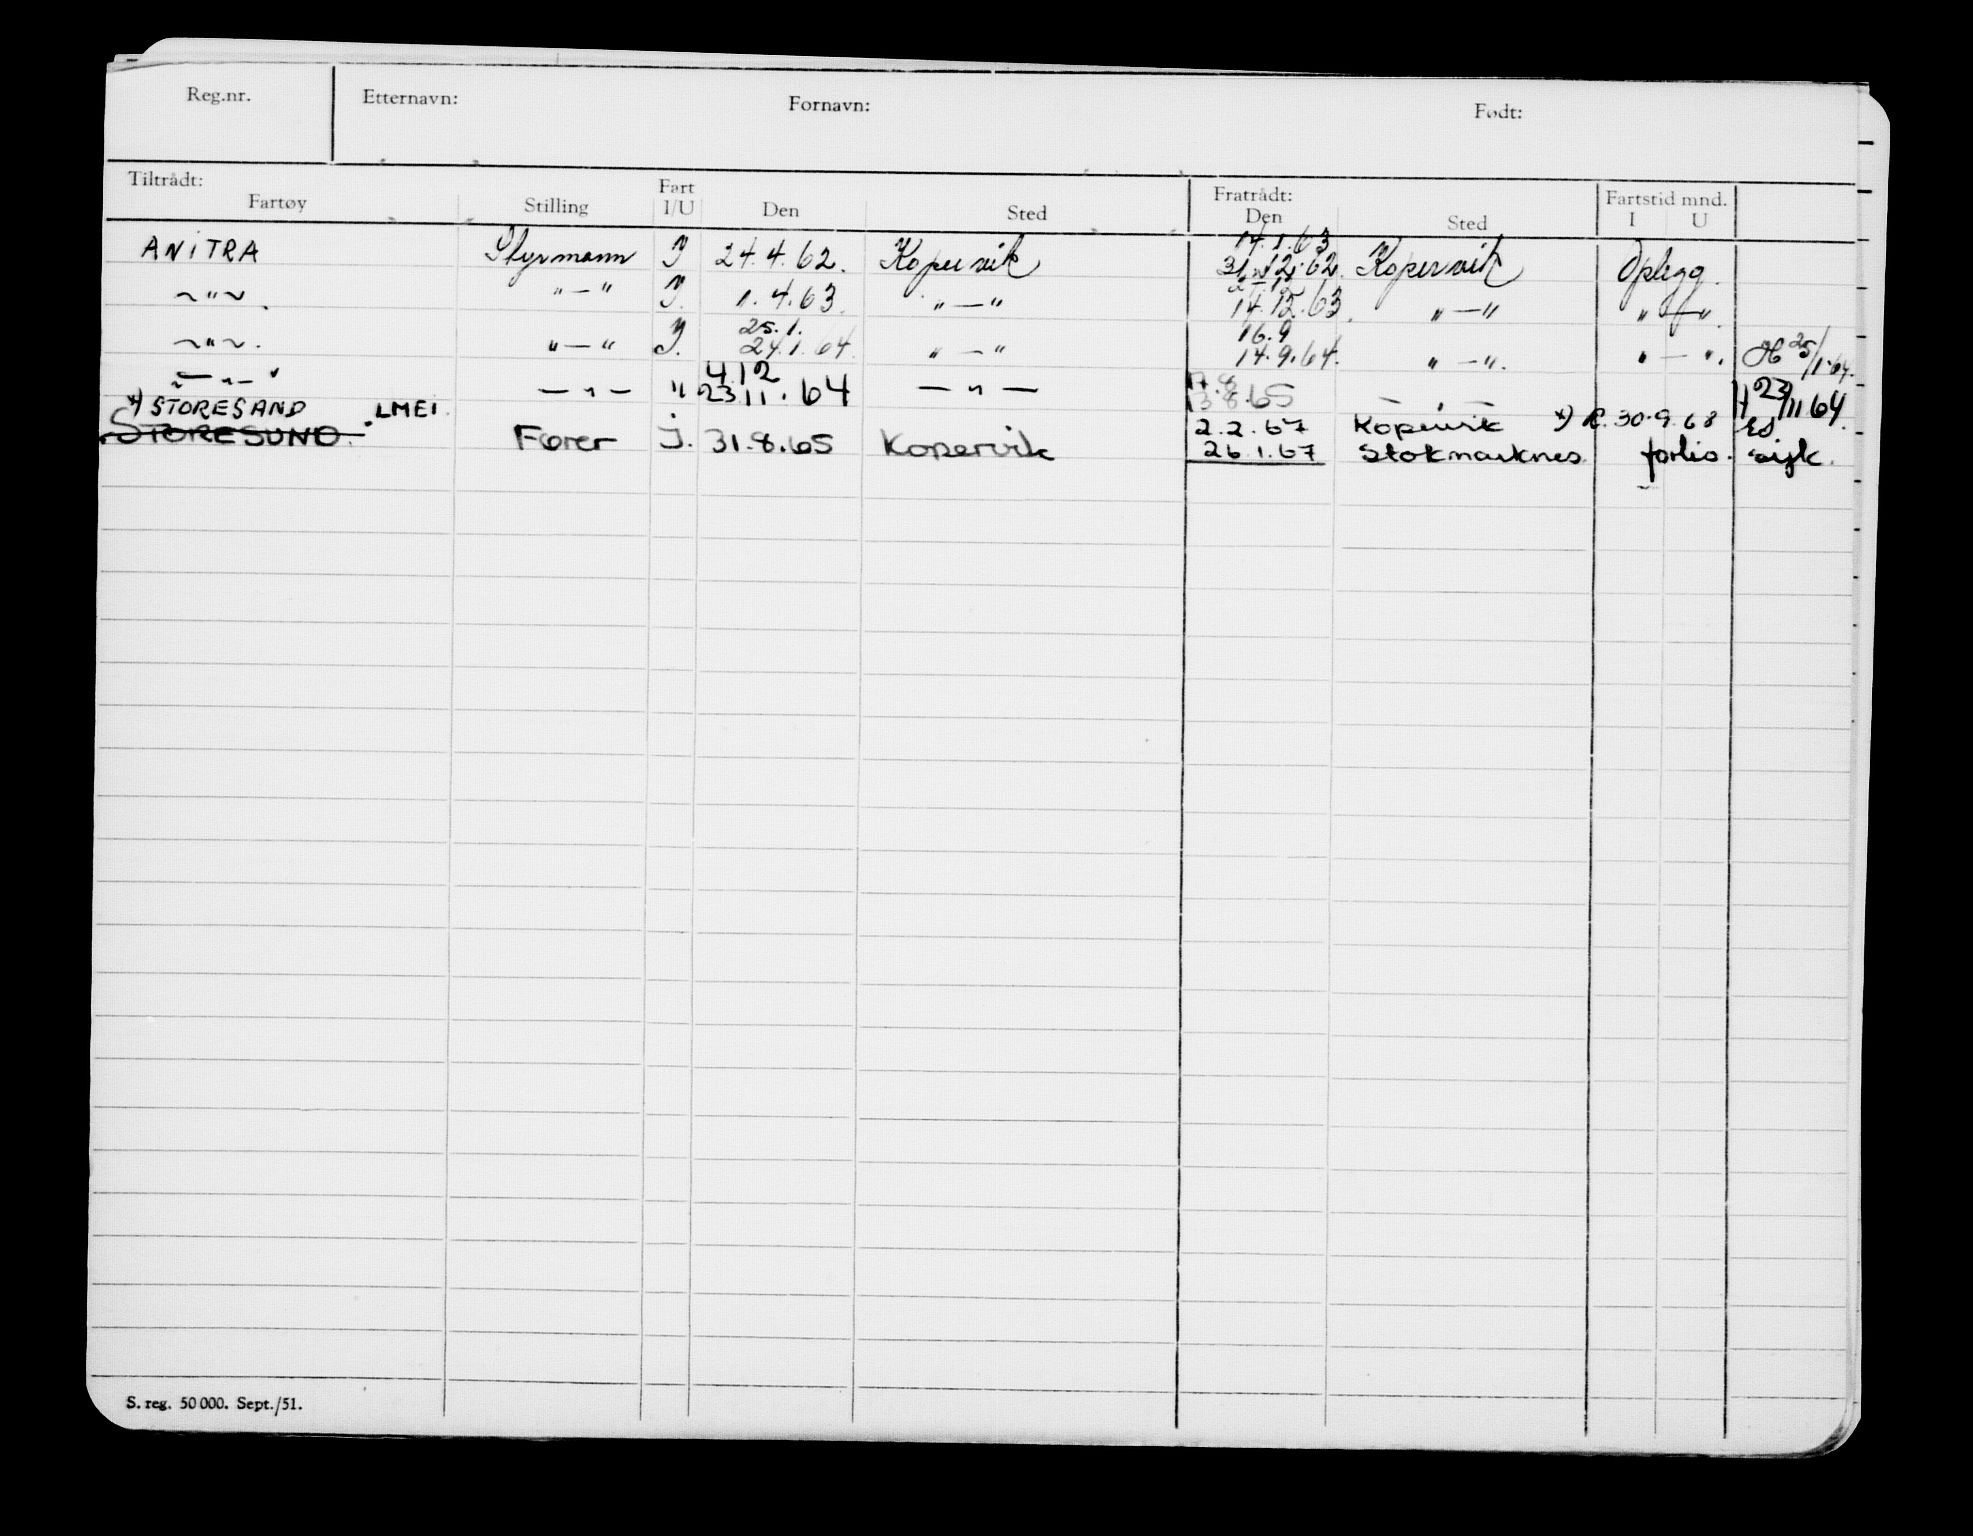 Reg.nr. Etternavn: Fornavn: Født:
Tiltrådt: Fartøy Stilling Fart I/U Den Sted Fratrådt: Den Sted Fartstid mnd. I U
14.1.63
ANiTRA Styrmann I 24.4.62. Kopervik 31.12.62. Kopervik Oplegg.
~"~. "—" I. 1.4.63. "—" 14.12.63. "—" "—".
25.1. 16.9
~"~. "—" I. 24.1.64. "—" 14.9.64. "—". "—". 25/1-64.
4.12 17.8
—"—" —"— " 23.11.64 —"— 13.8.65 —"— H 23/11 64
x) STORESAND LMEI. 2.2.67 Kopervik x) R. 30.9.68
STORESUND. Fører I. 31.8.65 Kopervik 26.1.67 Stokmarknes forlis.
S. reg. 50 000. Sept./51.